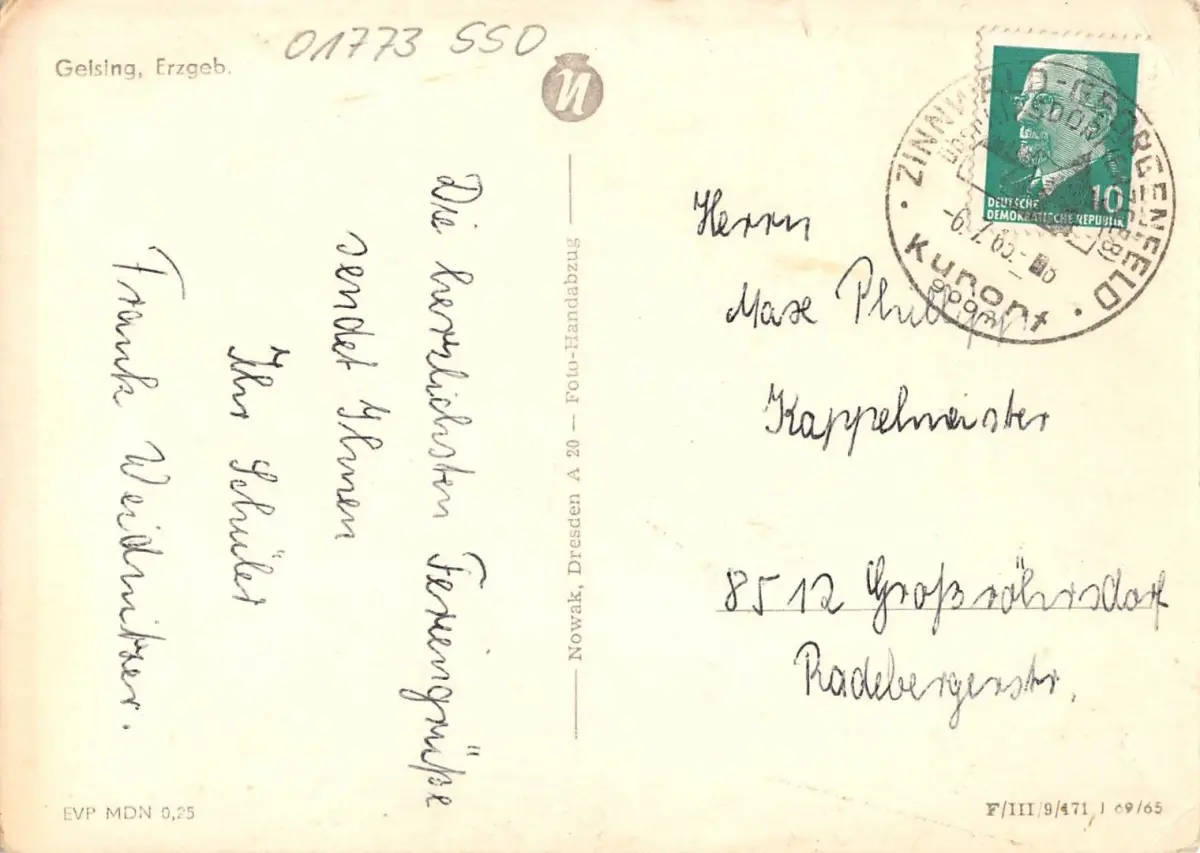 Geising, Erzgeb.
01773 SSO
Die herzlichsten Feriengrüße
sendet Ihnen
Ihr Schüler
Frank Weidnitzer.
Nowak, Dresden A 20 — Foto-Handabzug
DEUTSCHE
DEMOKRATISCHE REPUBLIK
10
ZINNWALD-GEORGENFELD
Kurort
900m
Herrn
Max
Kappelmeister
8512 Großröhrsdorf
Radebergerstr.
EVP MDN 0,25
F/III/9/171 J 69/65